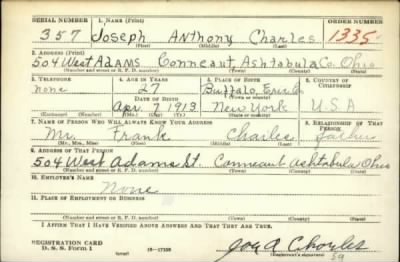 SERIAL NUMBER 1. NAME (Print) ORDER NUMBER
357 Joseph Anthony Charles 1335
(First) (Middle) (Last)
2. ADDRESS (Print)
504 West ADAMS Conneaut, Ashtabula Co. Ohio
(Number and street or R. F. D. number) (Town) (County) (State)
3. TELEPHONE 4. AGE IN YEARS 5. PLACE OF BIRTH 6. COUNTRY OF CITIZENSHIP
none 27 Buffalo, Erie Co
DATE OF BIRTH (Town) (County)
Apr 7 1913 New York U.S.A
(Exchange) (Number) (Mo.) (Day) (Yr.) (State or country)
7. NAME OF PERSON WHO WILL ALWAYS KNOW YOUR ADDRESS 8. RELATIONSHIP OF THAT PERSON
Mr. Frank Charles father
(Mr., Mrs., Miss) (First) (Middle) (Last)
9. ADDRESS OF THAT PERSON
504 West Adams St. Conneaut Ashtabula Ohio
(Number and street or R. F. D. number) (Town) (County) (State)
10. EMPLOYER'S NAME
None
11. PLACE OF EMPLOYMENT OR BUSINESS
(Number and street or R. F. D. number) (Town) (County) (State)
I AFFIRM THAT I HAVE VERIFIED ABOVE ANSWERS AND THAT THEY ARE TRUE.
REGISTRATION CARD
D. S. S. Form 1 (over) 16-17105 Joy A Charles
(Registrant's signature)